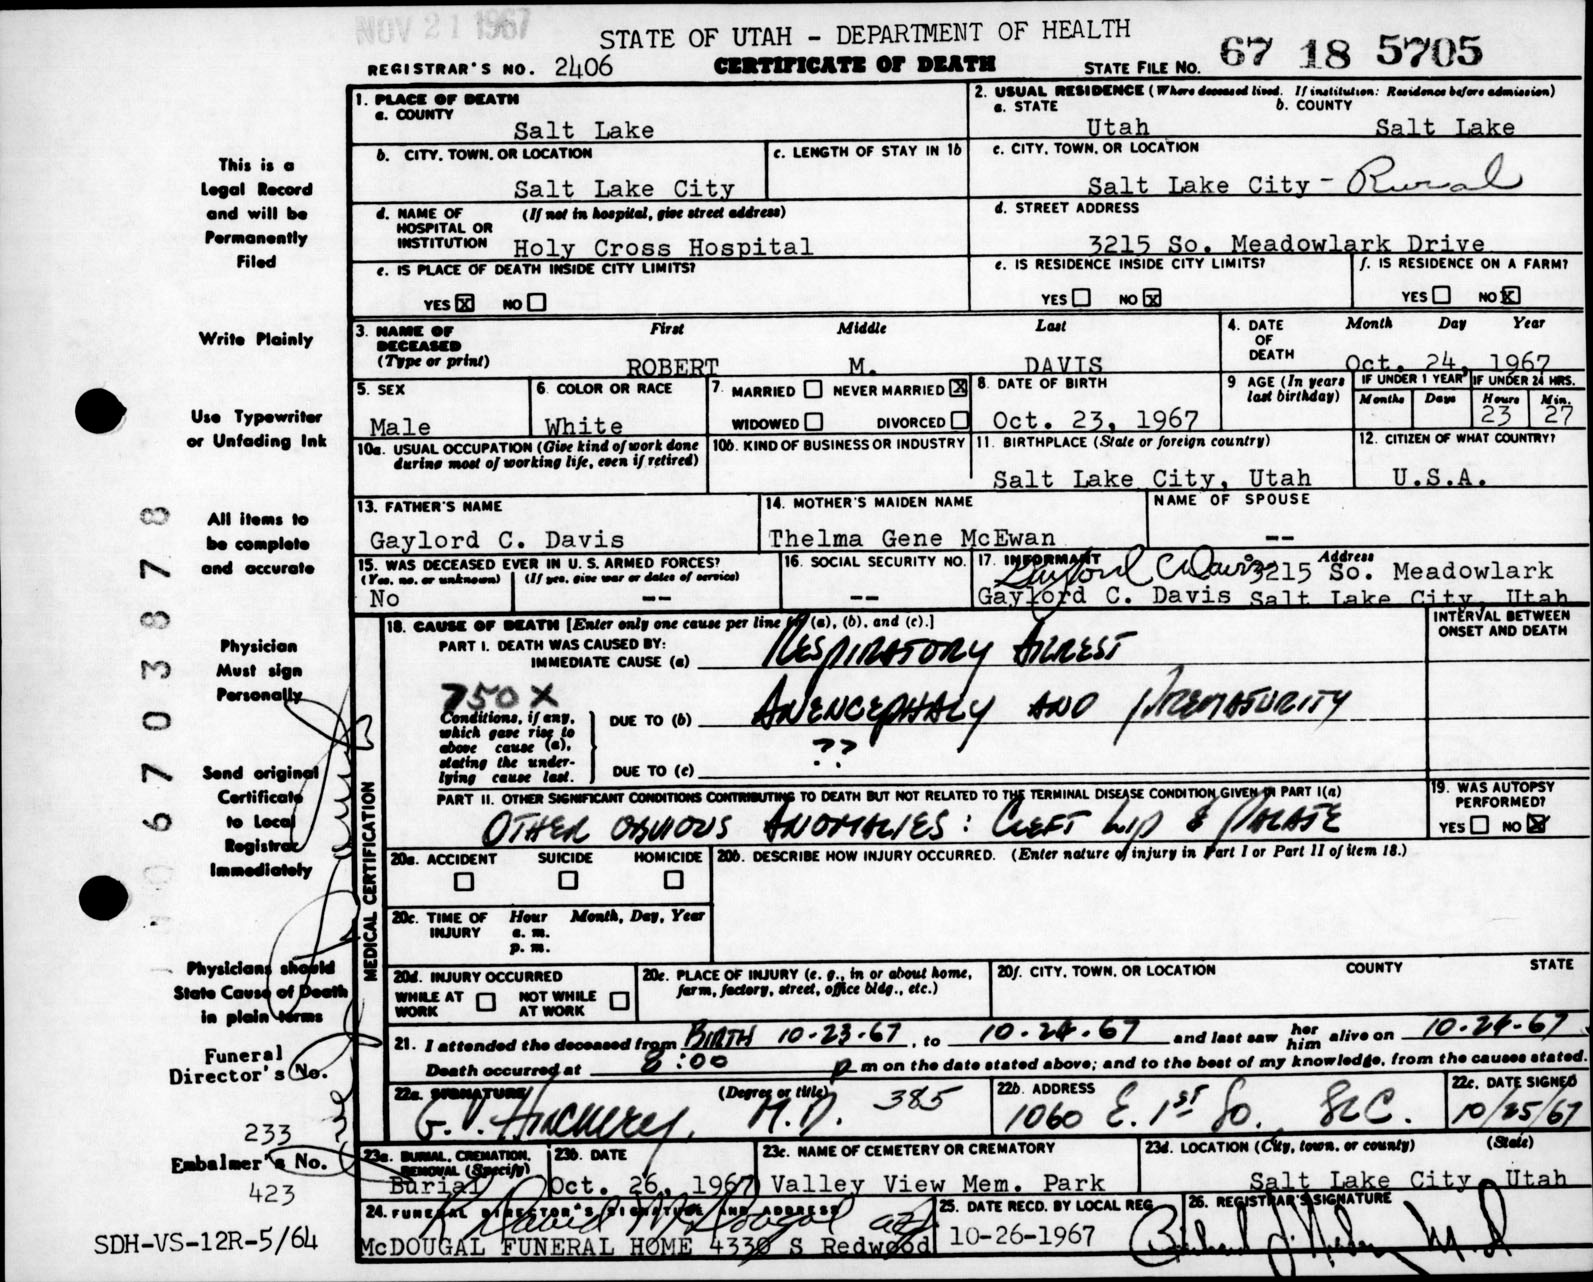 NOV 21 1967
STATE OF UTAH - DEPARTMENT OF HEALTH
REGISTRAR'S NO. 2406 CERTIFICATE OF DEATH STATE FILE NO. 67 18 5705
This is a
Legal Record
and will be
Permanently
Filed
Write Plainly
Use Typewriter
or Unfading Ink
All items to
be complete
and accurate
Physician
Must sign
Personally
Send original
Certificate
to Local
Registrar
Immediately
Physicians should
State Cause of Death
in plain terms
Funeral
Director's No.
233
Embalmer's No.
423
SDH-VS-12R-5/64
0 6 7 0 3 8 7 8
1. PLACE OF DEATH
a. COUNTY
Salt Lake
2. USUAL RESIDENCE (Where deceased lived. If institution: Residence before admission)
a. STATE b. COUNTY
Utah Salt Lake
b. CITY, TOWN, OR LOCATION
Salt Lake City
c. LENGTH OF STAY IN 1b
c. CITY, TOWN, OR LOCATION
Salt Lake City - Rural
d. NAME OF (If not in hospital, give street address)
HOSPITAL OR
INSTITUTION Holy Cross Hospital
d. STREET ADDRESS
3215 So. Meadowlark Drive
e. IS PLACE OF DEATH INSIDE CITY LIMITS?
YES X NO
e. IS RESIDENCE INSIDE CITY LIMITS?
YES NO X
f. IS RESIDENCE ON A FARM?
YES NO X
3. NAME OF First Middle Last
DECEASED
(Type or print) ROBERT M. DAVIS
4. DATE Month Day Year
OF
DEATH Oct. 24, 1967
5. SEX
Male
6. COLOR OR RACE
White
7. MARRIED NEVER MARRIED X
WIDOWED DIVORCED
8. DATE OF BIRTH
Oct. 23, 1967
9 AGE (In years
last birthday)
IF UNDER 1 YEAR IF UNDER 24 HRS.
Months Days Hours Min.
23 27
10a. USUAL OCCUPATION (Give kind of work done
during most of working life, even if retired)
10b. KIND OF BUSINESS OR INDUSTRY
11. BIRTHPLACE (State or foreign country)
Salt Lake City, Utah
12. CITIZEN OF WHAT COUNTRY?
U.S.A.
13. FATHER'S NAME
Gaylord C. Davis
14. MOTHER'S MAIDEN NAME
Thelma Gene McEwan
NAME OF SPOUSE
--
15. WAS DECEASED EVER IN U. S. ARMED FORCES?
(Yes, no, or unknown) (If yes, give war or dates of service)
No --
16. SOCIAL SECURITY NO.
--
17. INFORMANT Address
Gaylord C Davis 3215 So. Meadowlark
Gaylord C. Davis Salt Lake City, Utah
MEDICAL CERTIFICATION
18. CAUSE OF DEATH [Enter only one cause per line for (a), (b), and (c).]
INTERVAL BETWEEN
ONSET AND DEATH
PART I. DEATH WAS CAUSED BY:
IMMEDIATE CAUSE (a) RESPIRATORY ARREST
750 X
Conditions, if any,
which gave rise to
above cause (a),
stating the under-
lying cause last.
DUE TO (b) ANENCEPHALY AND PREMATURITY
??
DUE TO (c)
PART II. OTHER SIGNIFICANT CONDITIONS CONTRIBUTING TO DEATH BUT NOT RELATED TO THE TERMINAL DISEASE CONDITION GIVEN IN PART I(a)
OTHER OBVIOUS ANOMALIES: CLEFT LIP & PALATE
19. WAS AUTOPSY
PERFORMED?
YES NO X
20a. ACCIDENT SUICIDE HOMICIDE
20b. DESCRIBE HOW INJURY OCCURRED. (Enter nature of injury in Part I or Part II of item 18.)
20c. TIME OF Hour Month, Day, Year
INJURY a. m.
p. m.
20d. INJURY OCCURRED
WHILE AT NOT WHILE
WORK AT WORK
20e. PLACE OF INJURY (e. g., in or about home,
farm, factory, street, office bldg., etc.)
20f. CITY, TOWN, OR LOCATION COUNTY STATE
21. I attended the deceased from BIRTH 10-23-67, to 10-24-67 and last saw her him alive on 10-24-67
Death occurred at 8:00 p m on the date stated above; and to the best of my knowledge, from the causes stated.
22a. SIGNATURE (Degree or title)
G. V. M.D. 385
22b. ADDRESS
1060 E. 1st So. SLC.
22c. DATE SIGNED
10/25/67
23a. BURIAL, CREMATION,
REMOVAL (Specify)
Burial
23b. DATE
Oct. 26, 1967
23c. NAME OF CEMETERY OR CREMATORY
Valley View Mem. Park
23d. LOCATION (City, town, or county) (State)
Salt Lake City, Utah
24. FUNERAL DIRECTOR'S SIGNATURE AND ADDRESS
McDOUGAL FUNERAL HOME 4330 S Redwood
25. DATE RECD. BY LOCAL REG.
10-26-1967
26. REGISTRAR'S SIGNATURE